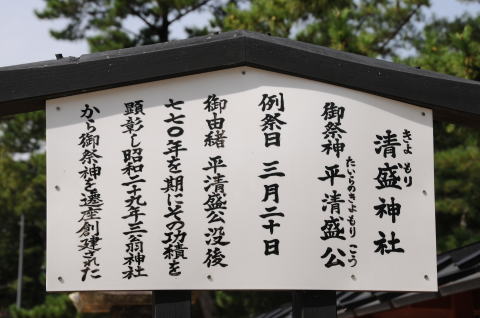 きよ もり
清盛神社
御祭神 平清盛公
たいらのきよもり こう
例祭日 三月二十日
御由緒 平清盛公没後
七七〇年を期にその功績を
顕彰し昭和二十九年三翁神社
から御祭神を遷座創建された